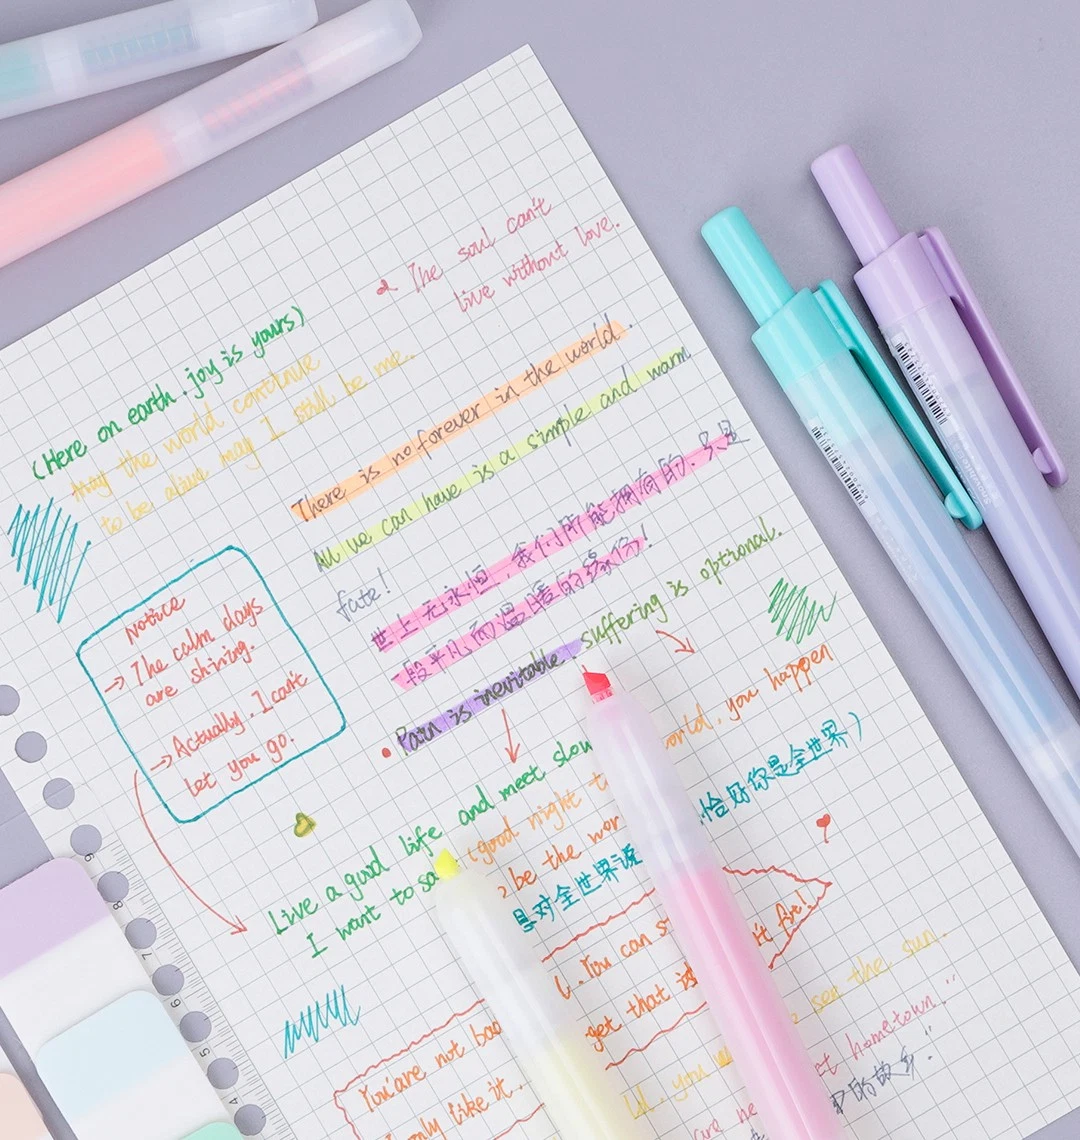 The soul can't
live without love.
(Here on earth. joy is yours)
May the world continue
to be alive may I still be me.
There is no forever in the world.
All we can have is a simple and warm
fate!
世上无永恒,我们所能拥有的,只是
一段平凡而温暖的缘份!
Pain is inevitable. suffering is optional.
Notice
→ The calm days
are shining.
→ Actually. I can't
let you go.
Live a good life and meet slow
I want to sa
(good night t
world, you happen
be the wor
恰好你是全世界)
是对全世界说
You can s
get that is
't fit!
You are not bad
only like it.
see the sun.
ld. you
et hometown."
are
的故乡."
6
8
7
6
5
4